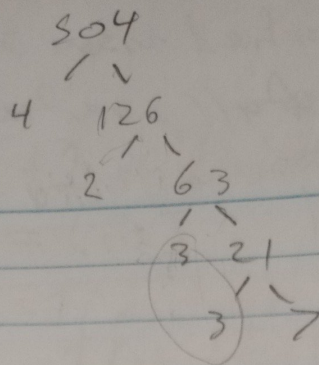 504
4 126
2 63
3 21
3 7